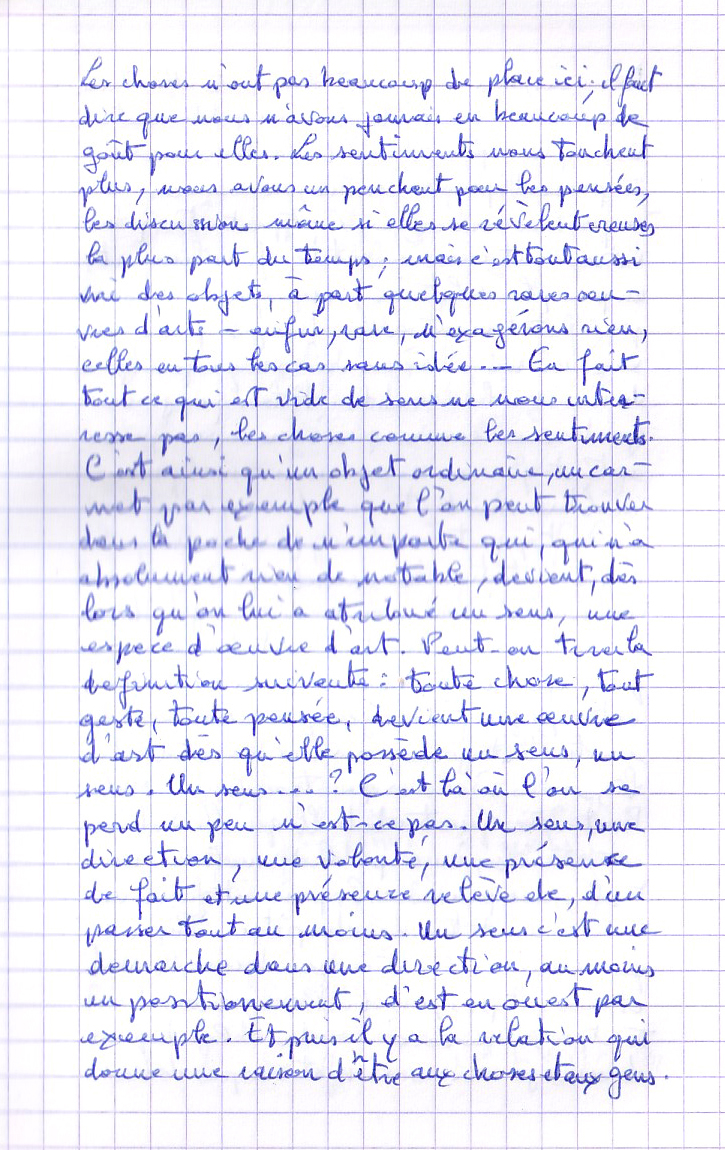 Les choses n'ont pas beaucoup de place ici; il faut
dire que nous n'avons jamais eu beaucoup de
goût pour elles. Les sentiments nous touchent
plus, nous avons un penchant pour les pensées,
les discussions même si elles se révèlent creuses
la plus part du temps; mais c'est tout aussi
vrai des objets, à part quelques rares oeu-
vres d'arts - enfin, rare, n'exagérons rien,
celles en tous les cas sans idée... En fait
tout ce qui est vide de sens ne nous inté-
resse pas, les choses comme les sentiments.
C'est ainsi qu'un objet ordinaire, un car-
net par exemple que l'on peut trouver
dans la poche de n'importe qui, qui n'a
absolument rien de notable, devient, dès
lors qu'on lui a attribué un sens, une
espece d'œuvre d'art. Peut-on tirer la
definition suivante : toute chose, tout
geste, toute pensée, devient une œuvre
d'art dès qu'elle possède un sens, un
sens. Un sens...? C'est là où l'on se
perd un peu n'est-ce pas. Un sens, une
direction, une volonté, une présence
de fait et une présence relève de, d'un
passer tout au moins. Un sens c'est une
demarche dans une direction, au moins
un positionement, d'est en ouest par
exemple. Et puis il y a la relation qui
donne une raison d'être aux choses et aux gens.